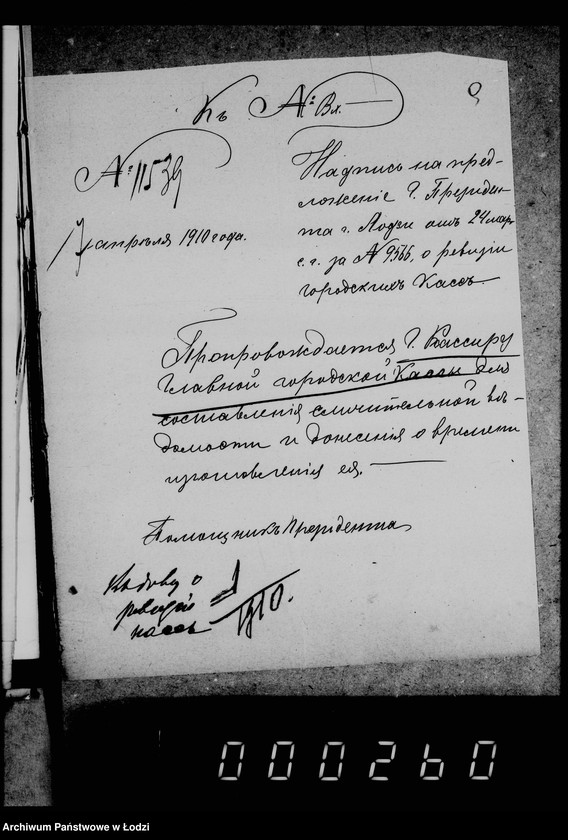 Къ № Вх.
№ 11539
17 апрѣля 1910 года.
Надпись на пред-
ложеніе Г. Президен-
та г. Лодзи отъ 24 мар.
с. г. за № 9566 о ревизіи
городскихъ Кассъ.
Препровождается Г. Кассиру
Главной городской Кассы для
составленія сличительной вѣ-
домости и донесенія о времени
изготовленія ея.
Помощникъ Президента
Къ дѣлу о
ревизіи
кассъ
1910.
000260
Archiwum Państwowe w Łodzi